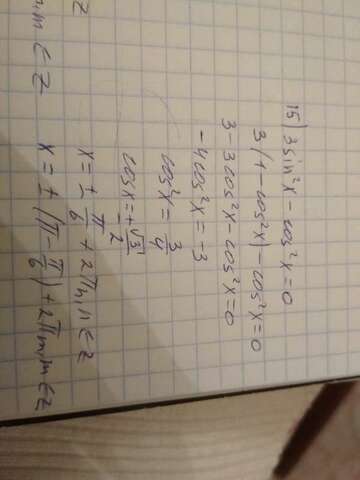 15) 3sin²x - cos²x = 0
3(1 - cos²x) - cos²x = 0
3 - 3cos²x - cos²x = 0
-4cos²x = -3
cos²x = 3/4
cosx = ±√3/2
x = ± π/6 + 2πn, n ∈ Z
x = ± (π - π/6) + 2πm, m ∈ Z
Z
m ∈ Z